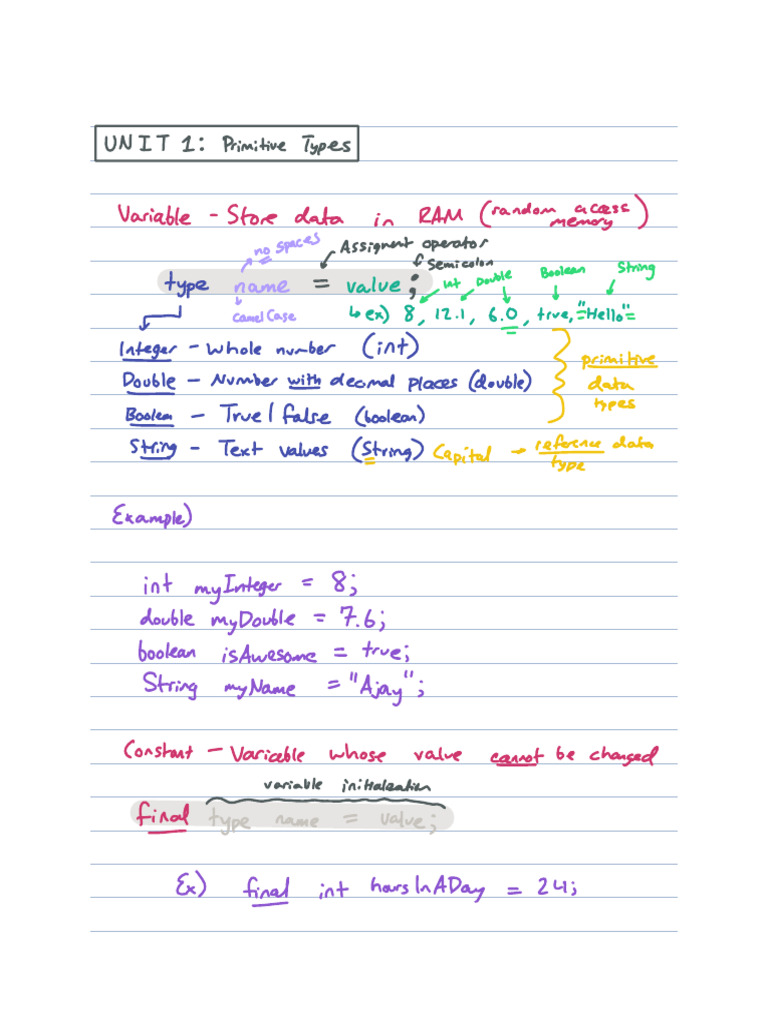 UNIT 1: Primitive Types
Variable - Store data in RAM (random access memory)
no spaces
Assignent operator
Semicolon
type name = value;
camelCase
Int Double Boolean String
↳ ex) 8, 12.1, 6.0, true, "Hello"
Integer - Whole number (int)
Double - Number with decimal places (double)
Boolean - True/false (boolean)
primitive data types
String - Text values (String) Capital → reference data type
Example)
int myInteger = 8;
double myDouble = 7.6;
boolean isAwesome = true;
String myName = "Ajay";
Constant - Variable whose value cannot be changed
variable initialization
final type name = value;
Ex) final int hoursInADay = 24;